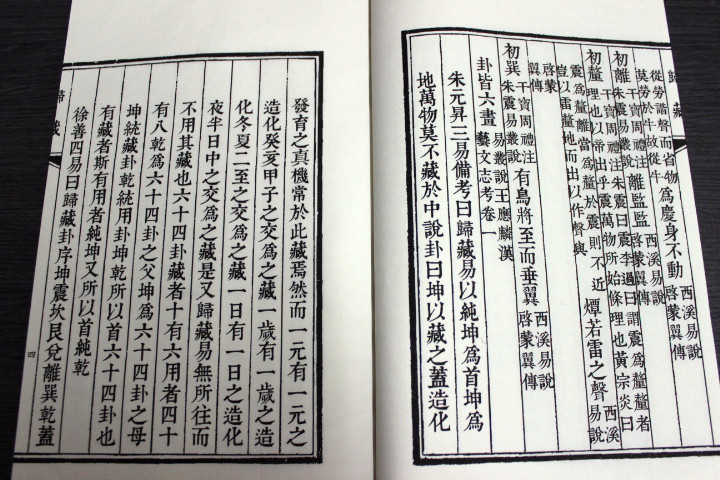 歸藏
從勞諧聲而省
莫勞於牛故從牛
物爲慶身不動
西溪易說
啓蒙翼傳
初離
朱震易叢說
干寶周禮注
離監監
西溪易說
啓蒙翼傳
初釐
干寶周禮注朱震曰震李過曰謂震爲釐釐者
理也以帝出乎震萬物所始條理也黃宗炎曰
震爲釐離當爲釐於震則不近
豈以雷釐地而出以作聲與
燂若雷之聲
西溪
易說
啓蒙
翼傳
初巽
干寶周禮注
朱震易叢說
有鳥將至而垂翼
西溪易說
啓蒙翼傳
卦皆六畫
易叢說王應麟漢
藝文志考卷一
朱元昇三易備考曰歸藏易以純坤爲首坤爲
地萬物莫不藏於中說卦曰坤以藏之蓋造化
發育之真機常於此藏焉然而一元有一元之
造化癸亥甲子之交爲之藏一歲有一歲之造
化冬夏二至之交爲之藏一日有一日之造化
夜半日中之交爲之藏是又歸藏易無所往而
不用其藏也六十四卦藏者十有六用者四十
有八乾爲六十四卦之父坤爲六十四卦之母
坤統藏卦乾統用卦坤乾所以首六十四卦也
有藏者斯有用者純坤又所以首純乾
徐善四易曰歸藏卦序坤震坎艮兌離巽乾蓋
歸藏
四